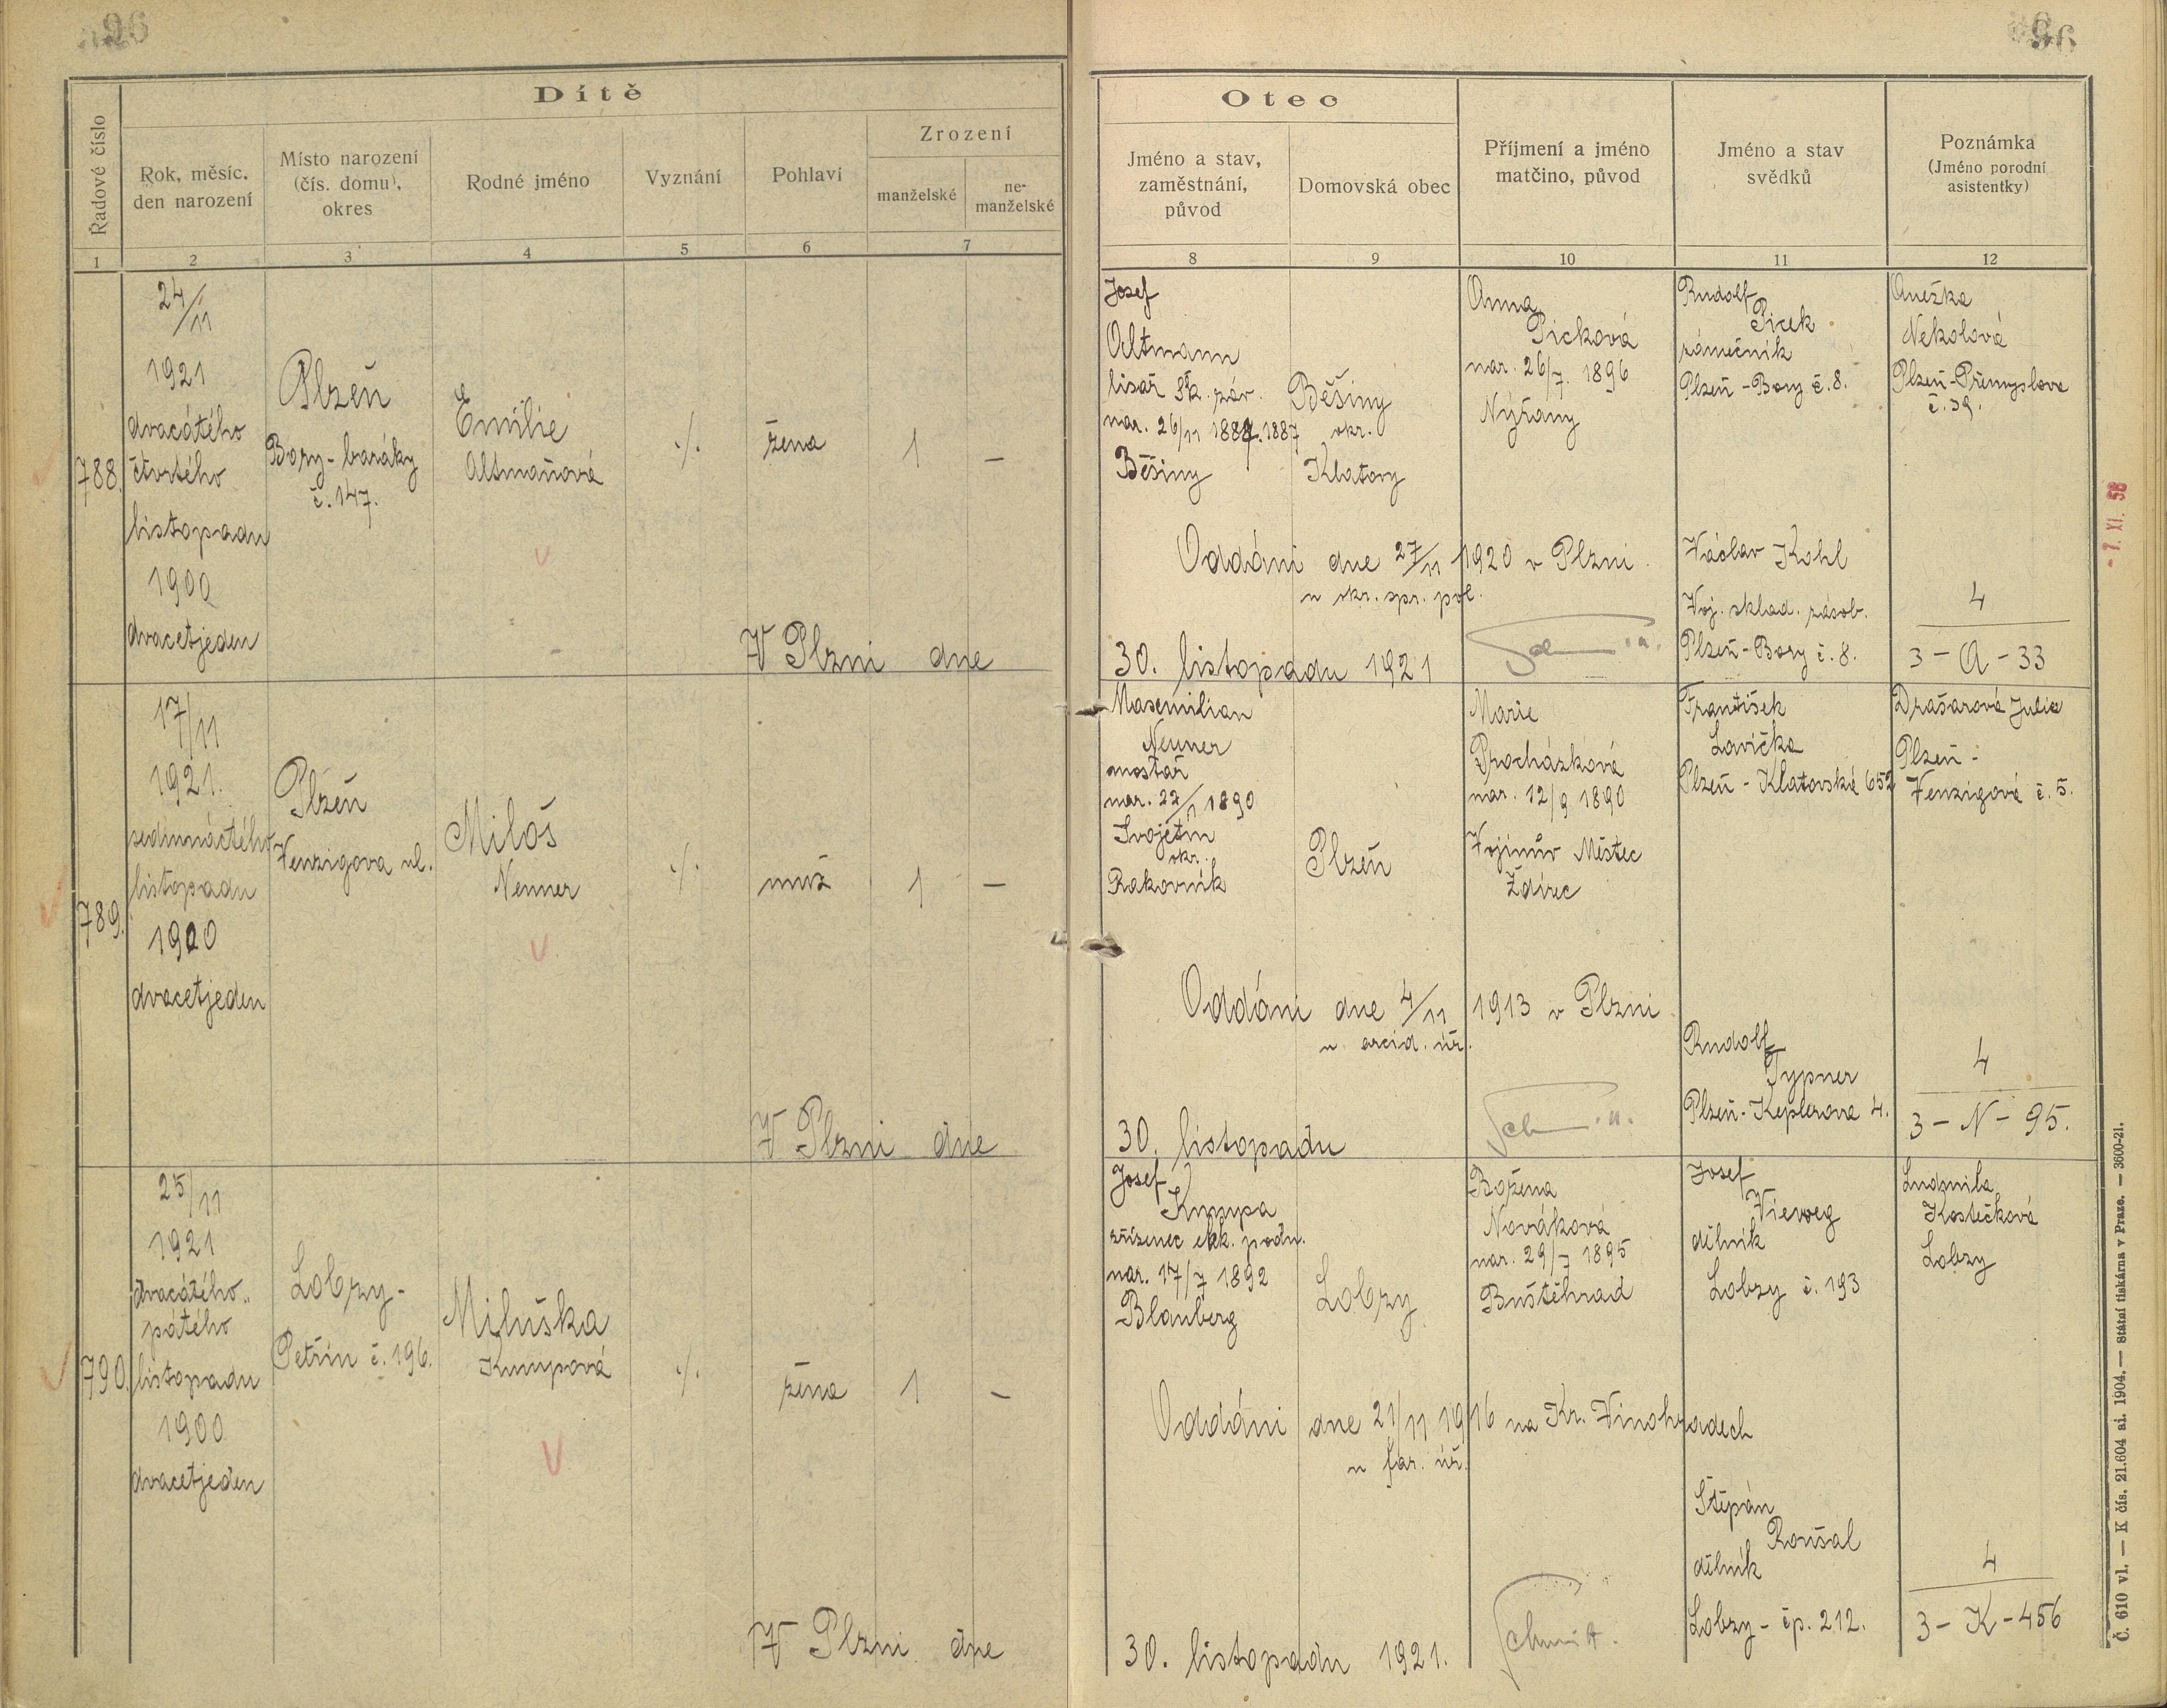 96
Dítě
Řadové číslo
Rok, měsíc,
den narození
Místo narození
(čís. domu),
okres
Rodné jméno
Vyznání
Pohlaví
Zrození
manželské
ne-
manželské
1
2
3
4
5
6
7
788.
24/11
1921
dvacátého
čtvrtého
listopadu
1900
dvacetjeden
Plzeň
Bory-baráky
č. 147.
Emilie
Altmaňová
./.
žena
1
–
V Plzni dne
789.
17/11
1921.
sedmnáctého
listopadu
1900
dvacetjeden
Plzeň
Venzigova ul.
Miloš
Neuner
./.
muž
1
–
V Plzni dne
790.
25/11
1921
dvacátého
pátého
listopadu
1900
dvacetjeden
Lobzy-
Petřín č. 196.
Miluška
Krnupová
./.
žena
1
–
V Plzni dne
96
Otec
Jméno a stav,
zaměstnání,
původ
Domovská obec
Příjmení a jméno
matčino, původ
Jméno a stav
svědků
Poznámka
(Jméno porodní
asistentky)
8
9
10
11
12
Josef
Altmann
lisař Šk. záv.
nar. 26/11 1887. 1887
Běšiny
Běšiny
okr.
Klatovy
Anna
Picková
nar. 26/7. 1896
Nýřany
Rudolf
Picek
zámečník
Plzeň-Bory č. 8.
Anežka
Nekolová
Plzeň-Přemyslova
č. 39.
Oddáni dne 27/11 1920 v Plzni.
u okr. spr. pol.
Václav Kohl
Voj. sklad. zásob.
Plzeň-Bory č. 8.
4
3-A-33
30. listopadu 1921
Maxemilian
Neuner
mosťař
nar. 22/11 1890
Svojetín
okr.
Rakovník
Plzeň
Marie
Procházková
nar. 12/9 1890
Vojnův Městec
Ždírec
František
Lavička
Plzeň-Klatovská 652
Drašarová Julie
Plzeň-
Venzigová č. 5.
Oddáni dne 4/11 1913 v Plzni
u arcid. úř.
Rudolf
Typner
Plzeň-Keplerova 4.
4
3-N-95.
30. listopadu
Josef
Krnupa
zřízenec elek. podn.
nar. 17/7 1892
Blauberg
Lobzy
Božena
Nováková
nar. 29/7 1895
Buštěhrad
Josef
Vieweg
dělník
Lobzy č. 193
Ludmila
Kostečková
Lobzy
Oddáni dne 21/11 1916 na Kr. Vinohradech
u far. úř.
Štěpán
Roušal
dělník
Lobzy-čp. 212.
4
3-K-456
30. listopadu 1921.
Schmidt.
- 7. XI. 58
Č. 610 vl. — K čís. 21.604 ai. 1904. — Státní tiskárna v Praze. — 3600-21.